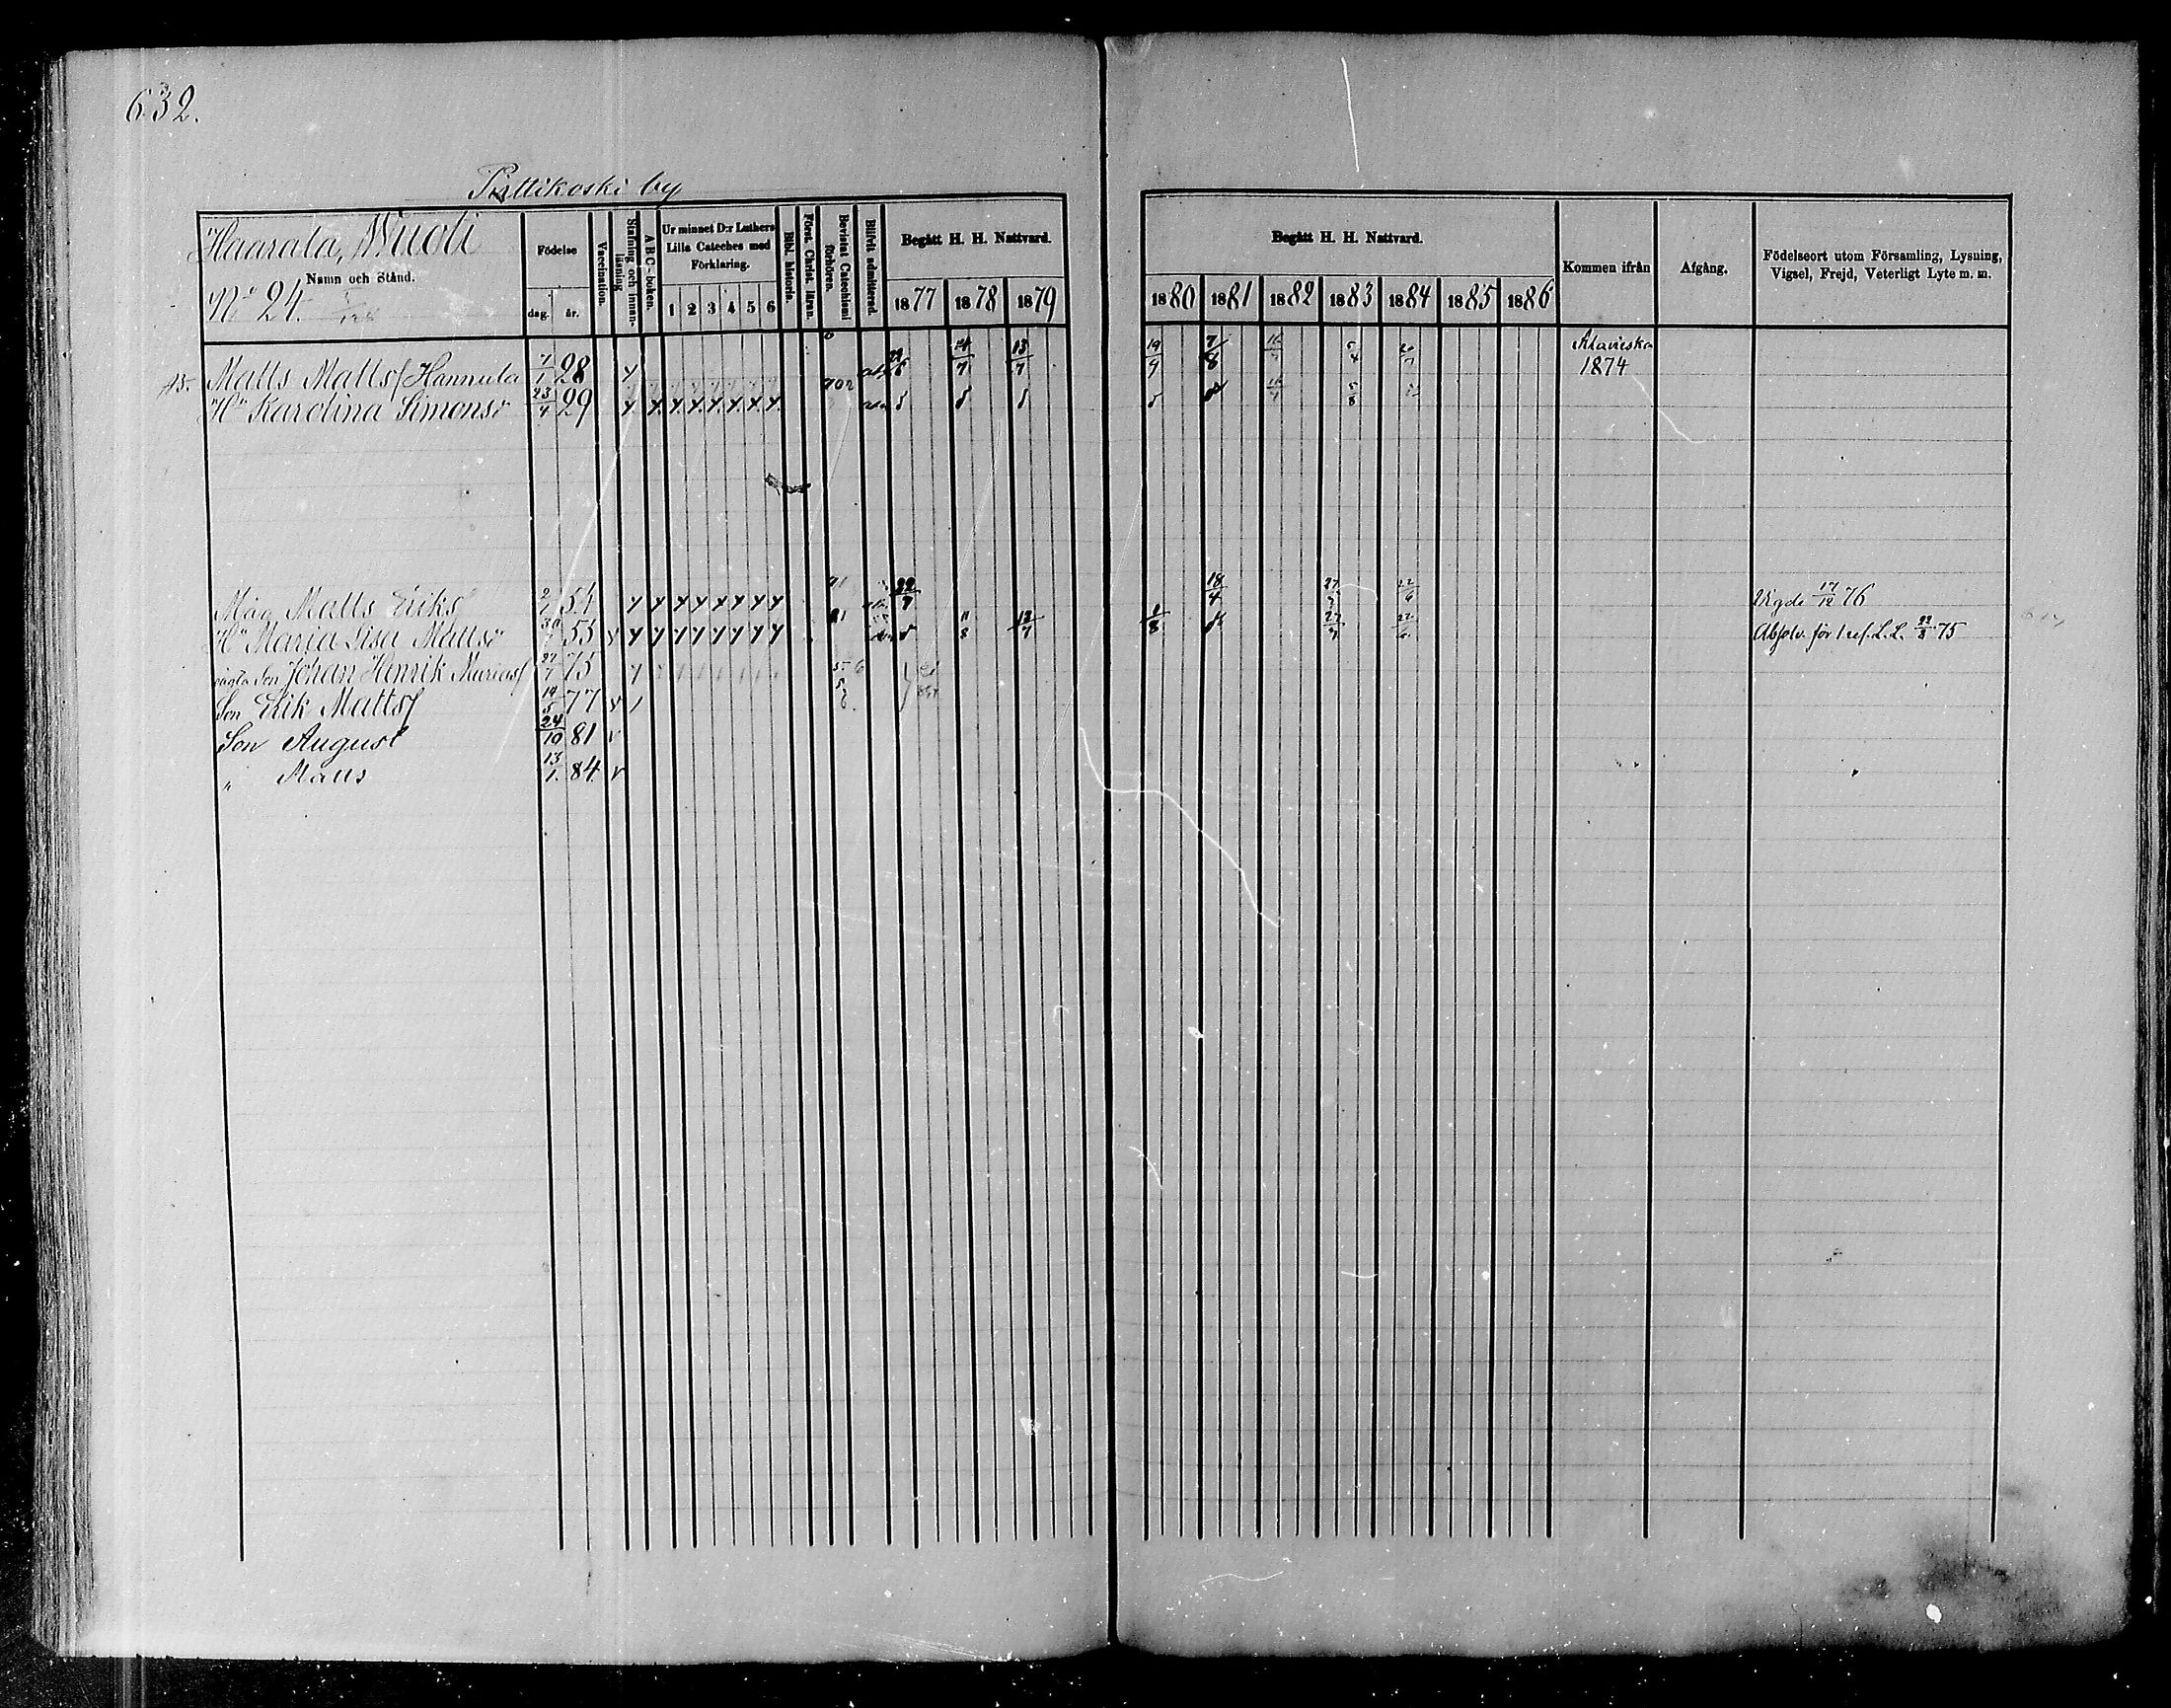 632.
Pittikoski by
Haarala, Nuoti
Namn och Stånd.
No 24.
Födelse
dag. år.
Vaccination.
Stafning och innanläsning
A B C-boken.
Ur minnet D:r Luthers Lilla Cateches med Förklaring.
1 2 3 4 5 6
Bibl. historia.
Först. Christ. läran.
Bevistat Catechismi förhören.
Blifvit admitterad.
Begått H. H. Nattvard.
1877 1878 1879
Begått H. H. Nattvard.
1880 1881 1882 1883 1884 1885 1886
Kommen ifrån
Afgång.
Födelseort utom Församling, Lysning, Vigsel, Frejd, Veterligt Lyte m. m.
Matts Mattsf Hannula 7/1 28 14/7 13/7 19/9 7/8 Alavieska 1874
Hu Karolina Simonsdr 23/4 29
Måg Matts Eriksf 2/1 54 71 22/7 18/4 27/9 22/6 Vigde 17/12 76
Hu Maria Lisa Mattsdr 30/7 55 81 11/8 13/7 1/8 27/9 22/6 Absolv. för 1 res. L. L. 22/8 75
oägta Son Johan Henrik Mariasf 27/7 75
Son Erik Mattsf 14/5 77
Son August 24/10 81
" Maus 13/1. 84